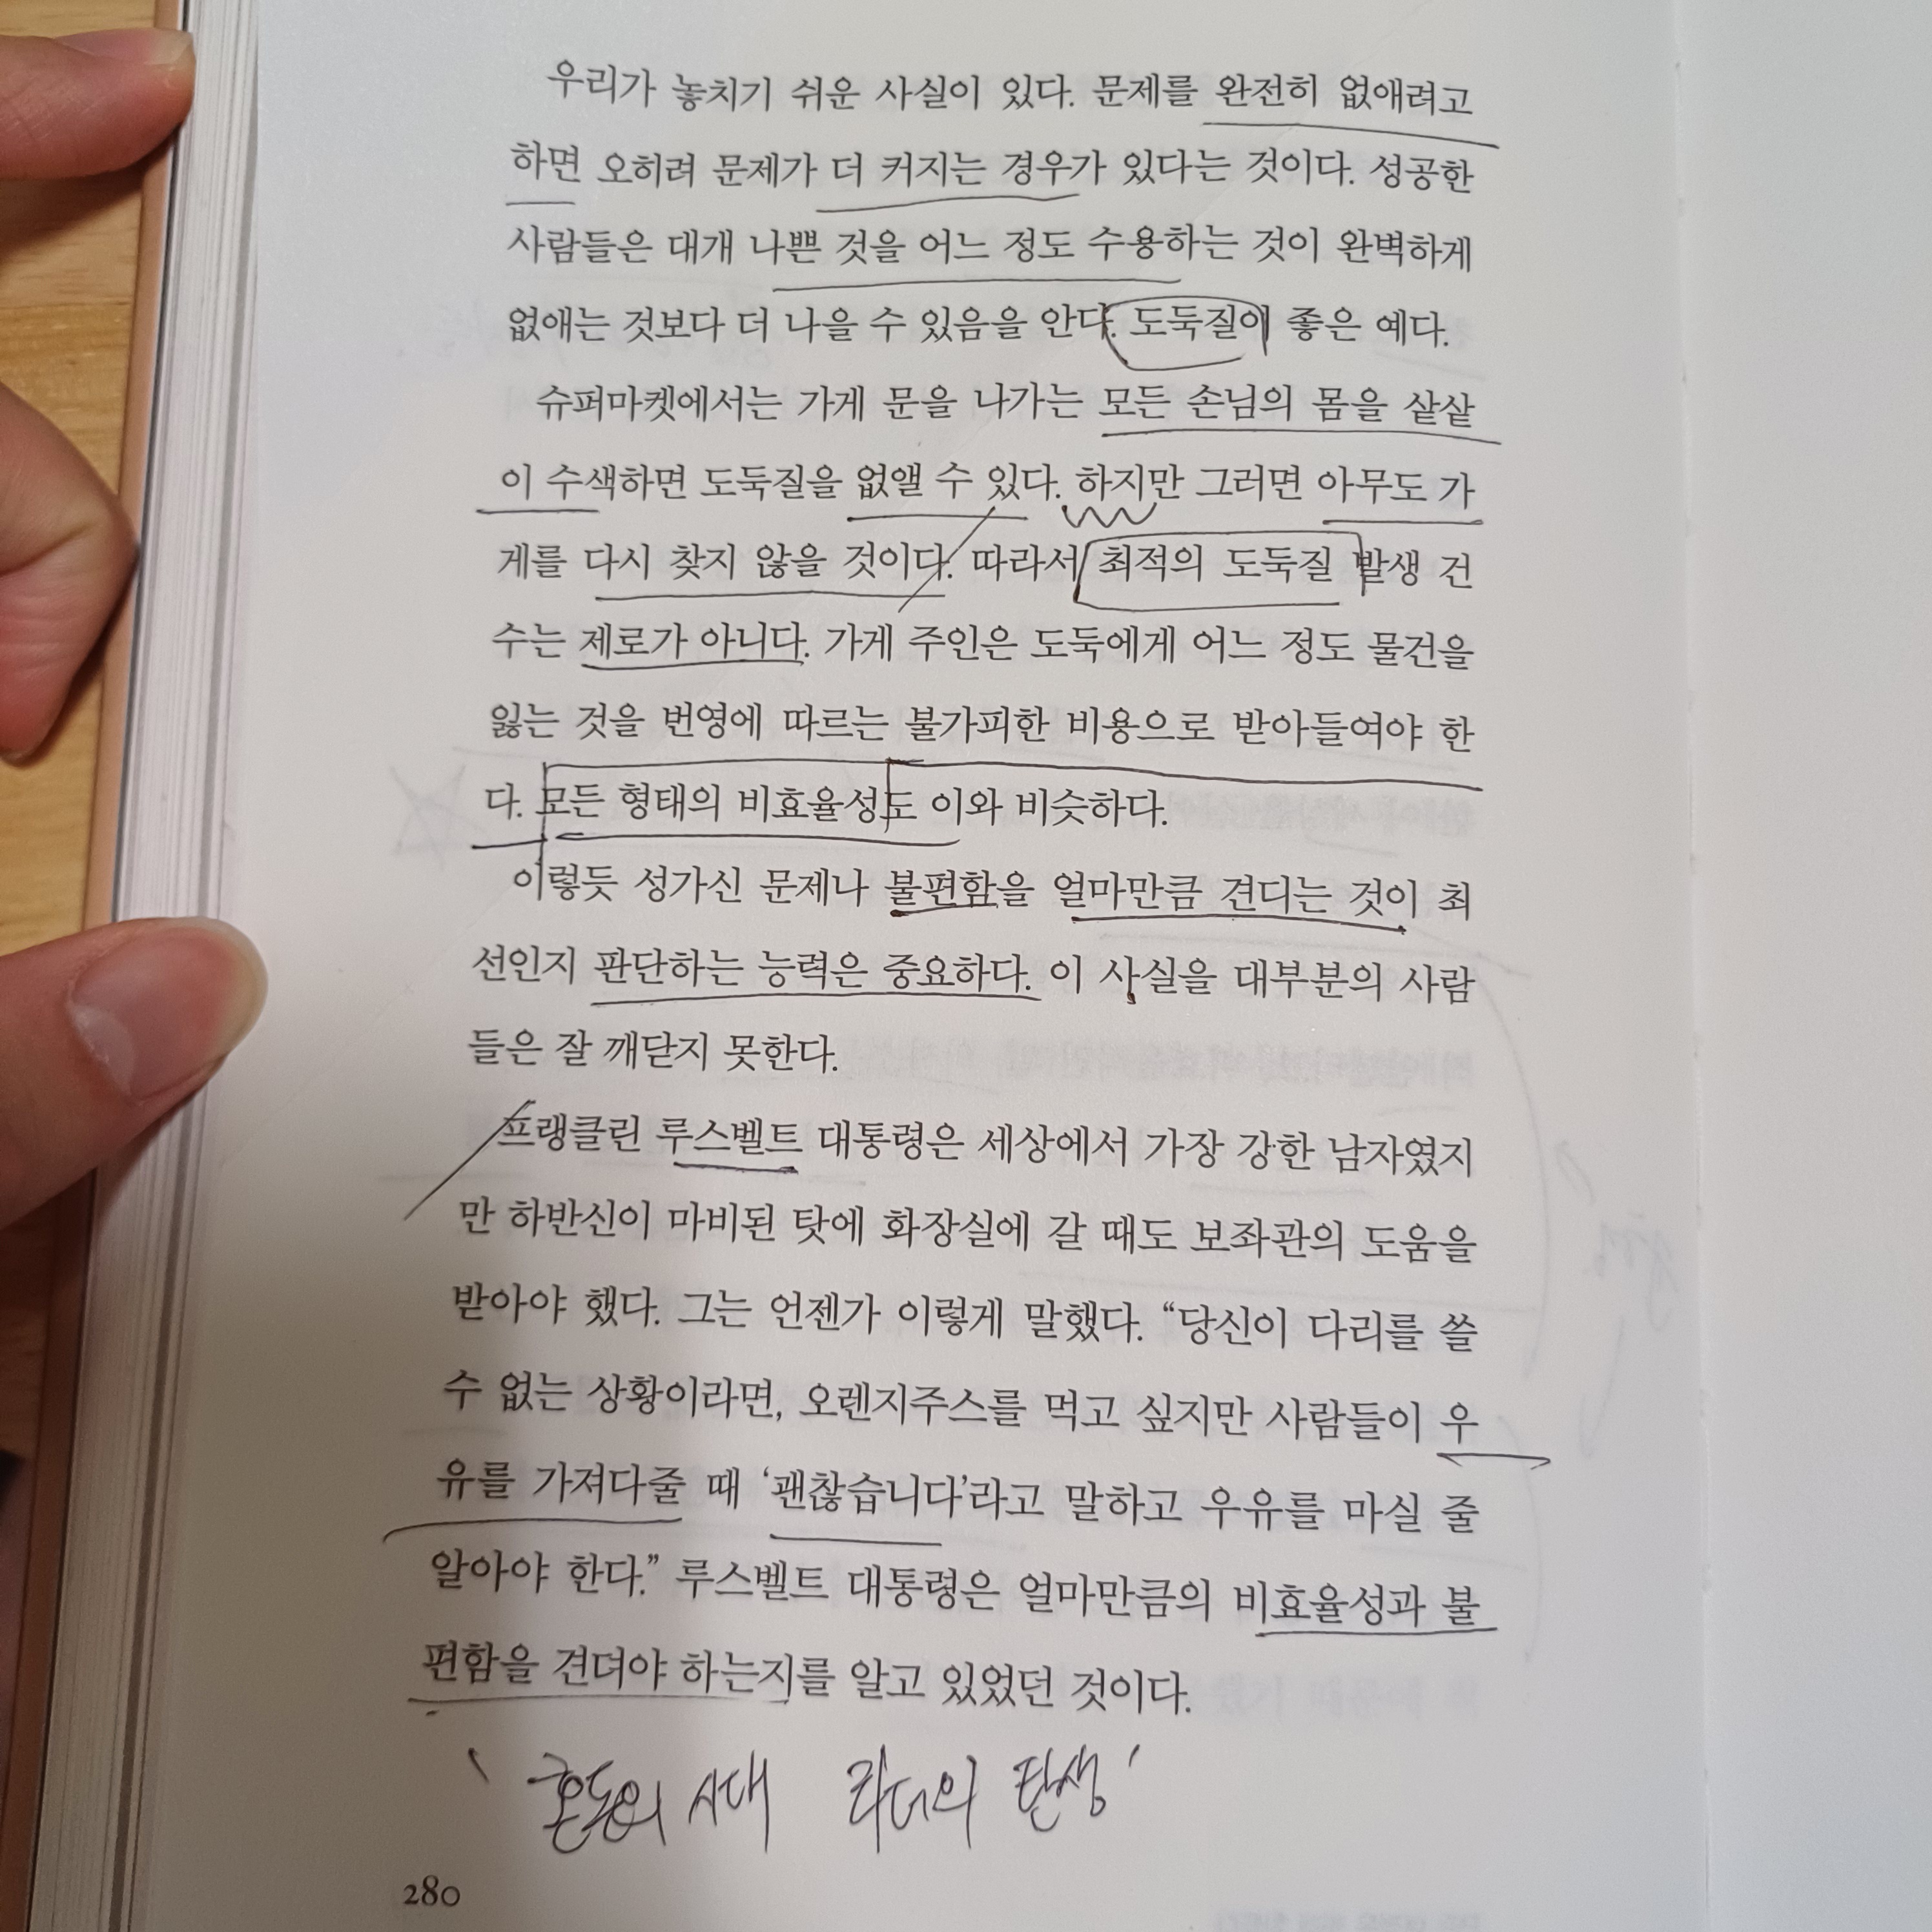 우리가 놓치기 쉬운 사실이 있다. 문제를 완전히 없애려고
하면 오히려 문제가 더 커지는 경우가 있다는 것이다. 성공한
사람들은 대개 나쁜 것을 어느 정도 수용하는 것이 완벽하게
없애는 것보다 더 나을 수 있음을 안다. 도둑질이 좋은 예다.
슈퍼마켓에서는 가게 문을 나가는 모든 손님의 몸을 샅샅
이 수색하면 도둑질을 없앨 수 있다. 하지만 그러면 아무도 가
게를 다시 찾지 않을 것이다. 따라서 최적의 도둑질 발생 건
수는 제로가 아니다. 가게 주인은 도둑에게 어느 정도 물건을
잃는 것을 번영에 따르는 불가피한 비용으로 받아들여야 한
다. 모든 형태의 비효율성도 이와 비슷하다.
이렇듯 성가신 문제나 불편함을 얼마만큼 견디는 것이 최
선인지 판단하는 능력은 중요하다. 이 사실을 대부분의 사람
들은 잘 깨닫지 못한다.
프랭클린 루스벨트 대통령은 세상에서 가장 강한 남자였지
만 하반신이 마비된 탓에 화장실에 갈 때도 보좌관의 도움을
받아야 했다. 그는 언젠가 이렇게 말했다. “당신이 다리를 쓸
수 없는 상황이라면, 오렌지주스를 먹고 싶지만 사람들이 우
유를 가져다줄 때 ‘괜찮습니다’라고 말하고 우유를 마실 줄
알아야 한다.” 루스벨트 대통령은 얼마만큼의 비효율성과 불
편함을 견뎌야 하는지를 알고 있었던 것이다.
‘혼돈의 시대 리더의 탄생’
280